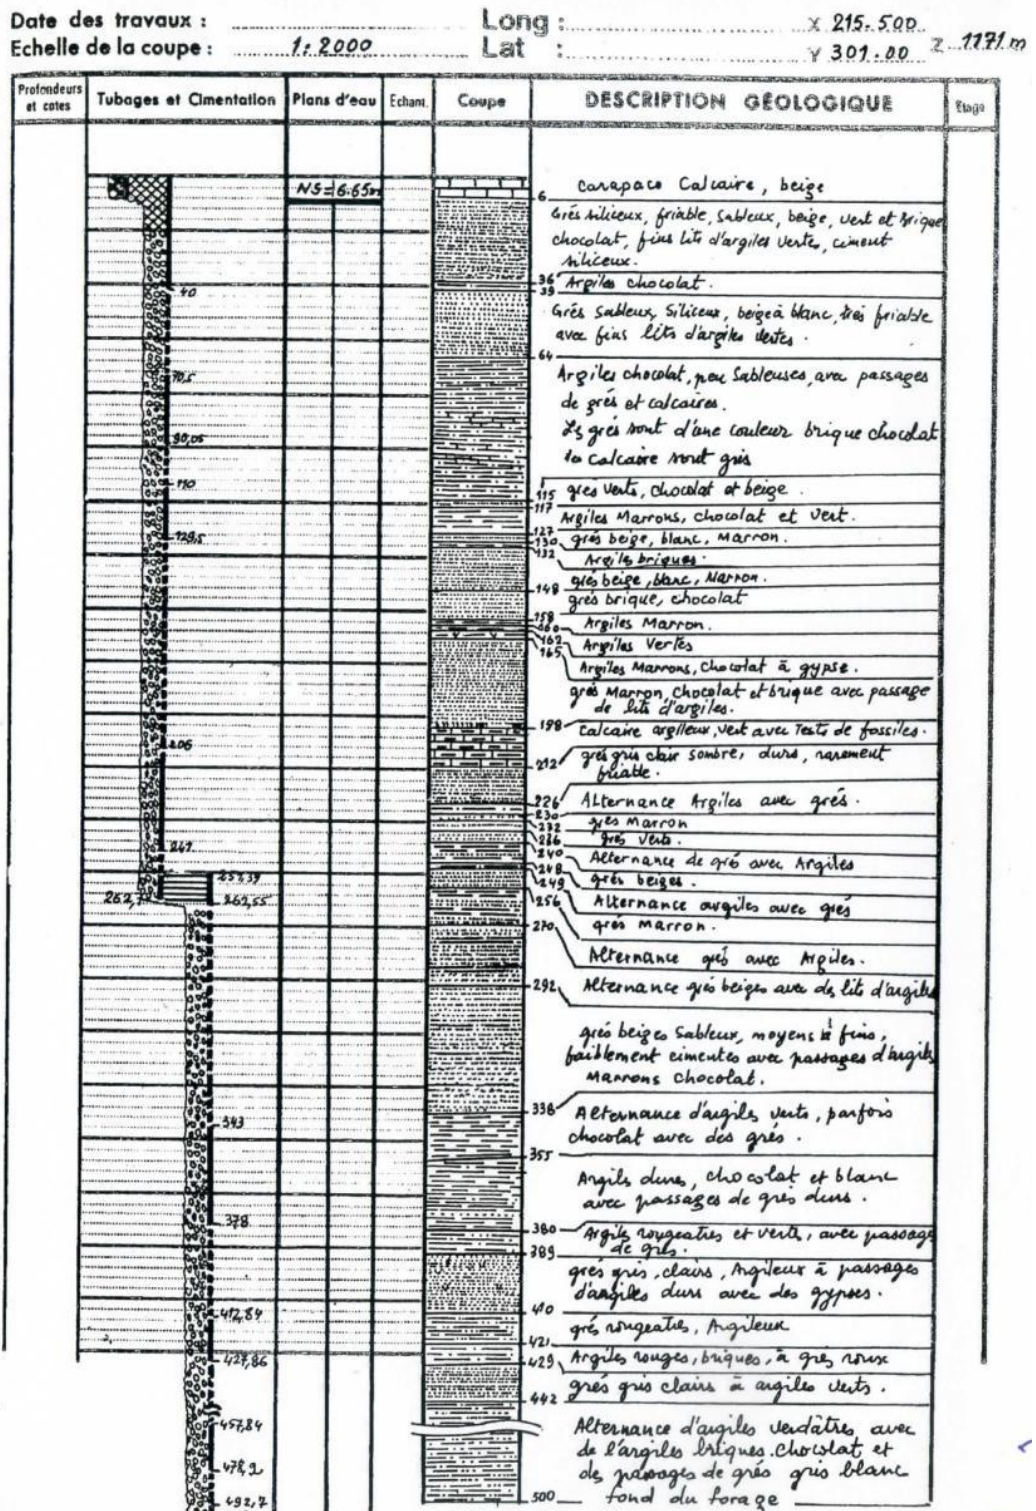 Date des travaux : Long : X 215.500
Echelle de la coupe : 1:2000 Lat : Y 301.00 Z 1171 m
Profondeurs et cotes
Tubages et Cimentation
Plans d'eau
Echant.
Coupe
DESCRIPTION GÉOLOGIQUE
Etage
NS=6.65m
Carapace Calcaire, beige
6
Grés siliceux, friable, Sableux, beige, vert et brique
chocolat, fins lits d'argiles vertes, ciment
siliceux.
36 Argiles chocolat.
39
40
Grés Sableux, Siliceux, beige à blanc, très friable
avec fins lits d'argiles vertes.
64
Argiles chocolat, peu Sableuses, avec passages
de grés et calcaires.
70,5
Les grés sont d'une couleur brique chocolat
90,05
les calcaire sont gris
110
115 grés verts, chocolat et beige.
117
Argiles Marrons, chocolat et vert.
127
129,5
130 grés beige, blanc, Marron.
132
Argiles briques.
grés beige, blanc, Marron.
148
grés brique, chocolat
158
160 Argiles Marron.
162 Argiles Vertes
165
Argiles Marrons, Chocolat à gypse.
grés Marron, chocolat et brique avec passage
de lits d'argiles.
198 Calcaire argileux, vert avec Tests de fossiles.
206
212 grés gris clair sombre, durs, rarement
friable.
226 Alternance Argiles avec grés.
230
232 grés Marron
236 grés Verts.
240 Alternance de grés avec Argiles
241
248 grés beiges.
249
257,39
256 Alternance argiles avec grés
262,7
262,55
grés Marron.
270
Alternance grés avec Argiles.
292 Alternance grés beiges avec des lits d'argiles
grés beiges Sableux, moyens à fins,
faiblement cimentés avec passages d'argiles
Marrons chocolat.
338
Alternance d'argiles verts, parfois
343
chocolat avec des grés.
355
Argiles dures, chocolat et blanc
avec passages de grés durs.
378
380 Argiles rougeatres et verts, avec passage
de grés.
389
grés gris, clairs, Argileux à passages
d'argiles durs avec des gypses.
410
412,84
grés rougeatres, Argileux
421
427,86
429 Argiles rouges, briques, à grés roux
grés gris clairs à argiles verts.
442
457,84
Alternance d'argiles verdâtres avec
de l'argiles briques. Chocolat et
478,2
des passages de grés gris blanc
492,7
500 fond du forage